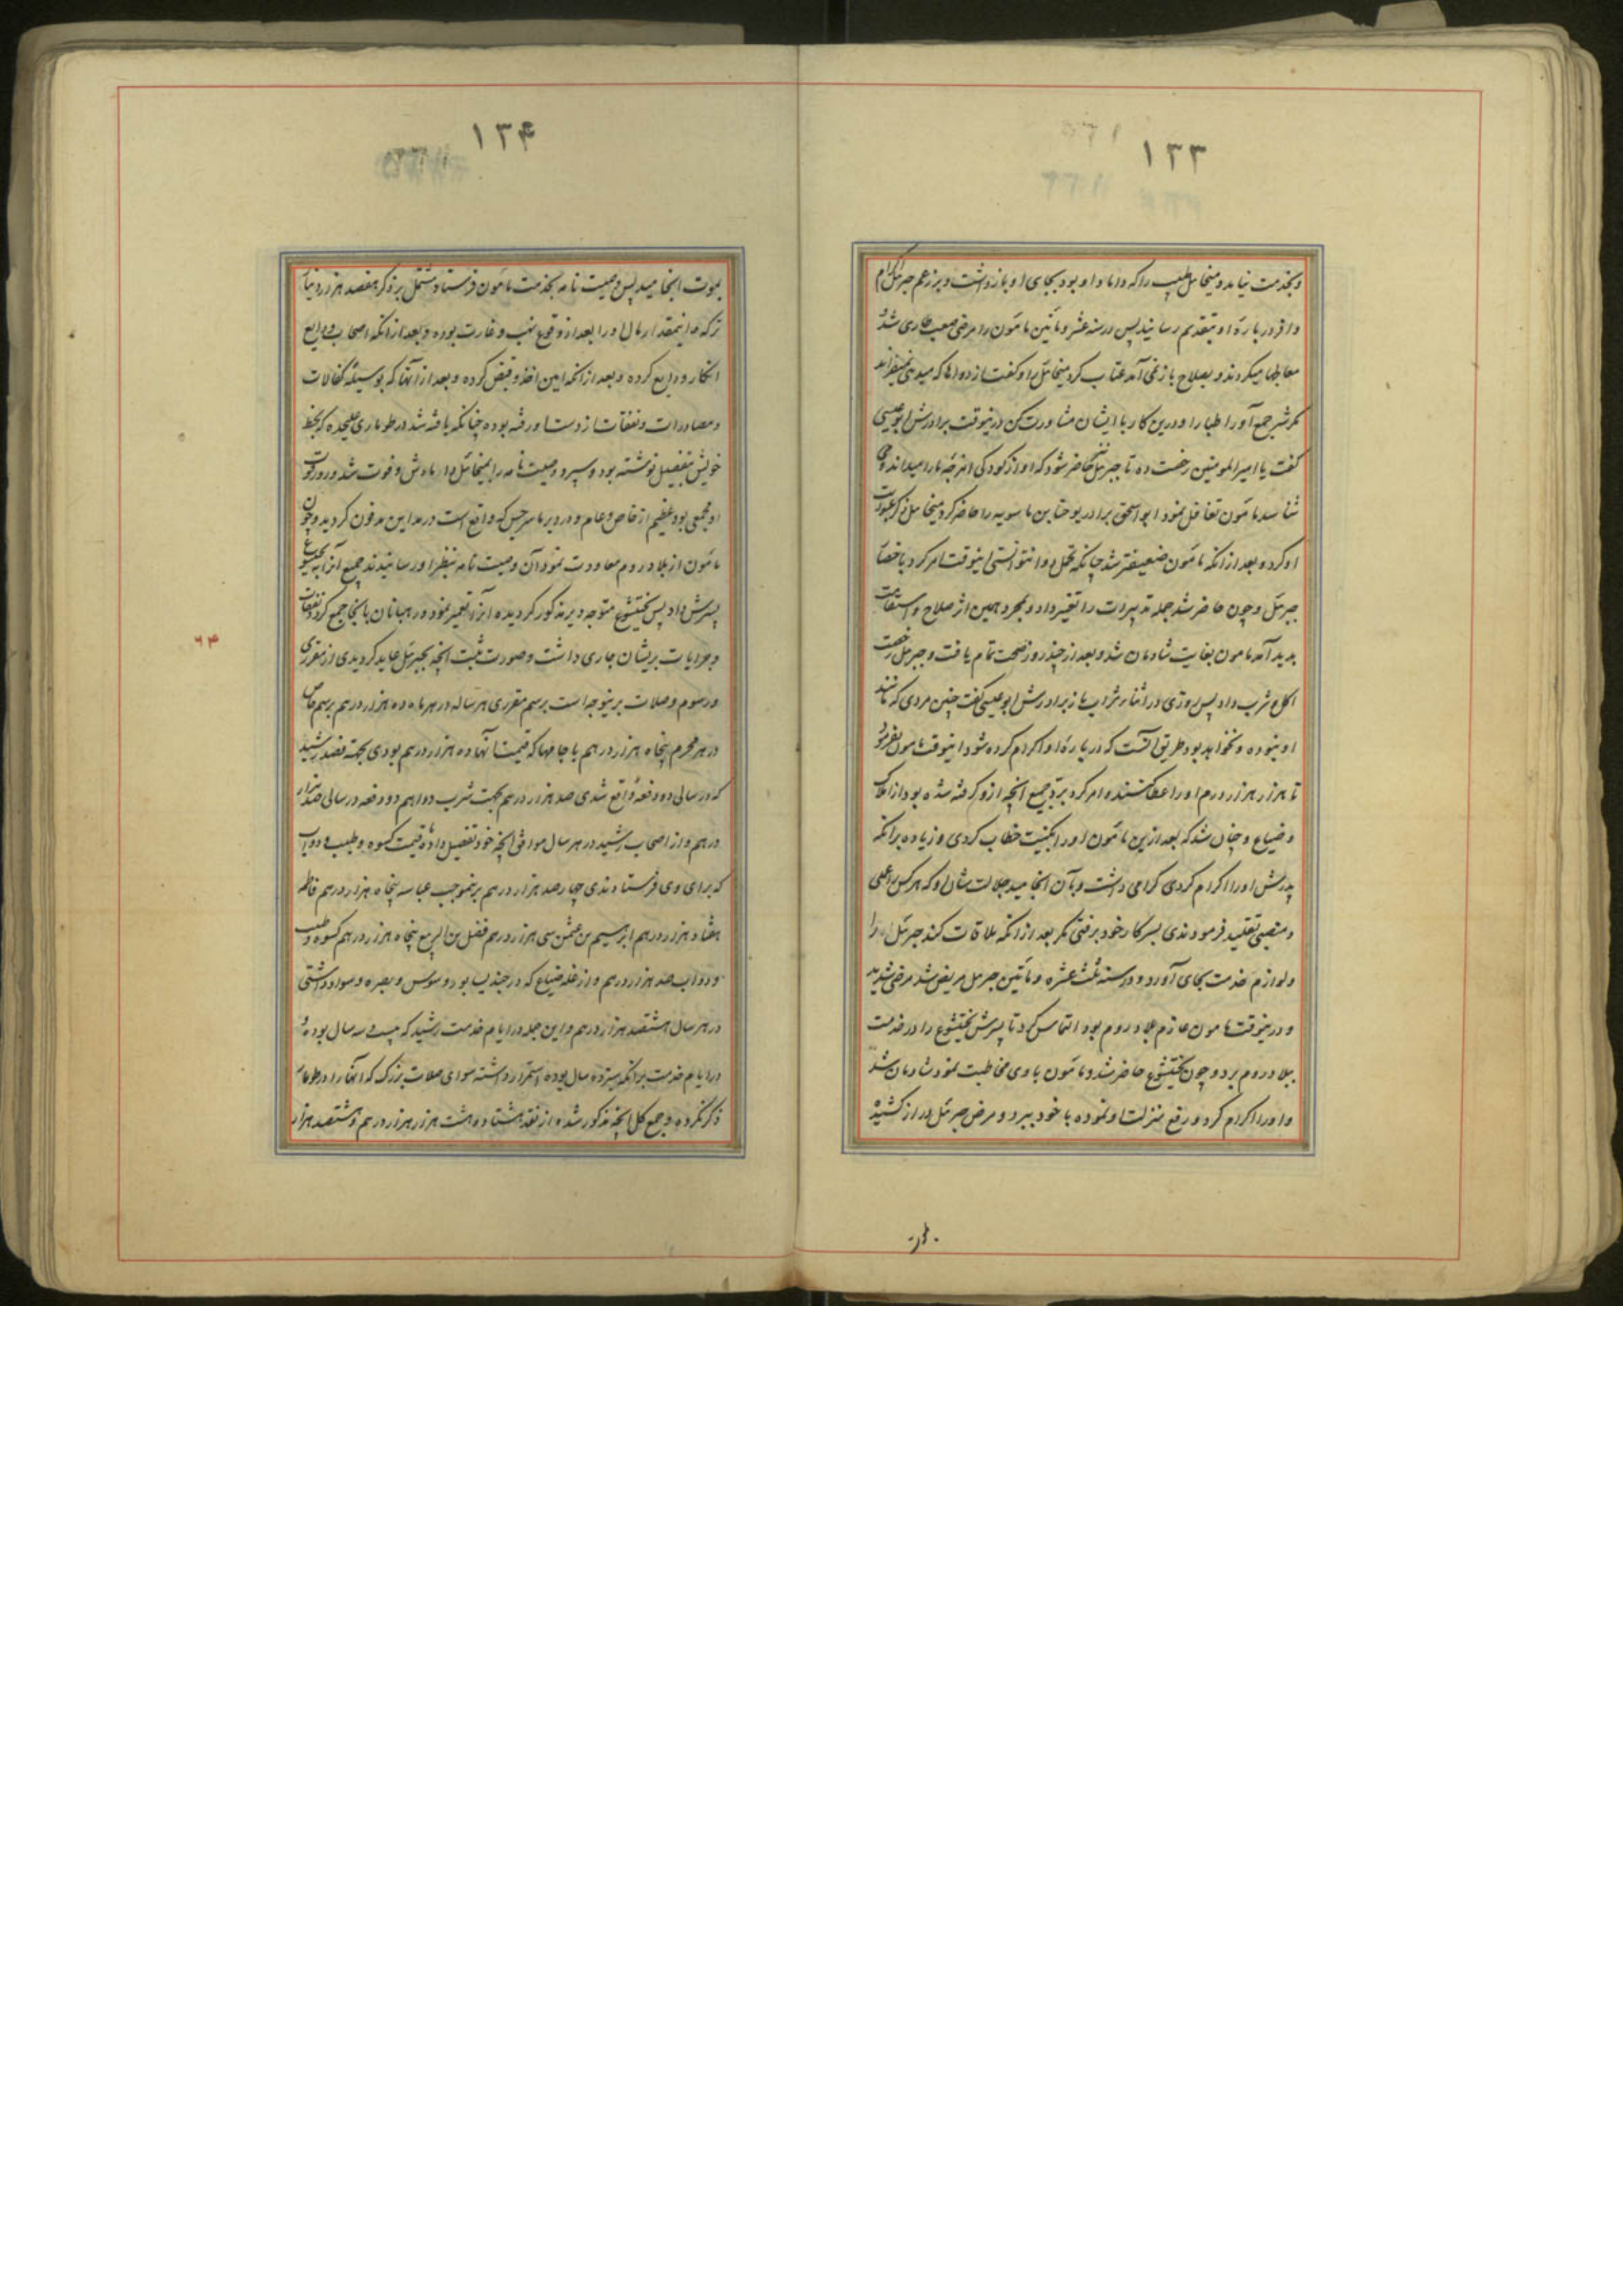 ۱۳۳
و بخدمت نیاید و میخائیل طبیب را که داماد او بود بجای او بازداشت و بر زعم جبرئیل اکرام
وافر درباره او بتقدیم رسانید پس در سنه عشر و مأتین مأمون را مرضی صعب طاری شد
معالجها میکردند و بصلاح باز نمی آمد عتاب کرد میخائیل را و گفت از دواها که میدهی
جمع آور اطبا را و درین کار با ایشان مشاورت کن درینوقت برادرش ابو عیسی
گفت یا امیر المومنین رخصت ده تا جبرئیل حاضر شود که او از کودکی امزجه ما را میداند و می
شناسد مأمون تغافل نمود ابو اسحق برادر یوحنا بن ماسویه را حاضر کرد میخائیل ذکر
او کرد و بعد از انکه مأمون ضعیفتر شد چنانکه تحمل دوا نتوانستی اینوقت امر کرد باحضار
جبرئیل و چون حاضر شد جمله تدبیرات را تغییر داد و بمجرد همین اثر صلاح و استقامت
پدید آمد مامون بغایت شادمان شد و بعد از چند روز صحت تمام یافت و جبرئیل رخصت
اکل و شرب داد پس روزی در اثناء شراب باز برادرش ابو عیسی گفت چنین مردی که مانند
او نبوده و نخواهد بود طریق آنست که درباره او اکرام کرده شود اینوقت مامون بفرمود
تا هزار هزار درم او را عطا کنند و امر کرد برد جمیع انچه ازو گرفته شده بود از املاک
و ضیاع و چنان شد که بعد ازین مأمون او را بکنیت خطاب کردی و زیاده بر انکه
پدرش او را اکرام کردی گرامی داشت و بآن انجامید جلالت شان او که هر کس را عملی
و منصبی تقلید فرمودندی بسر کار خود نرفتی مگر بعد از انکه ملاقات کند جبرئیل را
و لوازم خدمت بجای آورد و در سنه ثلث عشره و مأتین جبرئیل مریض شد مرضی شدید
و درینوقت مامون عازم بلاد روم بود التماس کرد تا پسرش بختیشوع را در خدمت
ببلاد روم برد و چون بختیشوع حاضر شد و مأمون با وی مخاطبت نمود شادمان شد
و او را اکرام کرد و رفع منزلت او نموده با خود ببرد و مرض جبرئیل دراز کشیده
۱۳۴
بموت انجامید پس وصیت نامه بخدمت مأمون فرستاد مشتمل بر ذکر هفتصد هزار دینار
ترکه و اینمقدار مال او را بعد از وقوع نهب و غارت بوده و بعد از انکه اصحاب ودایع
انکار ودایع کرده و بعد از انکه امین اخذ و قبض کرده و بعد از آنها که بوسیله کفالات
و مصادرات و نفقات از دست او رفته بوده چنانکه یافته شد در طوماری علیحده که بخط
خویش بتفصیل نوشته بود و سپرد وصیت نامه را بمیخائیل دامادش و فوت شد و در فوت
او مجمعی بود عظیم از خاص و عام و در دیر مارسرجس که واقع است در مداین مدفون گردید و چون
مأمون از بلاد روم معاودت نمود آن وصیت نامه بنظر او رسانیدند جمیع آنرا به بختیشوع
پسرش داد پس بختیشوع متوجه دیر مذکور گردیده آنرا تعمیر نمود و رهبانان بانجا جمع کرد و نفقات
و جرایات بریشان جاری داشت و صورت ثبت انچه بجبرئیل عاید گردیدی از مقرری
و رسوم و صلات برینوجه است برسم مقرری هر ساله در هر ماه ده هزار درهم برسم خاص
در هر محرم پنجاه هزار درهم با جامها که قیمت آنها ده هزار درهم بودی بجهة فصد رشید
که در سالی دو دفعه واقع شدی صد هزار درهم بجهت شرب دوا هم دو دفعه در سالی صد هزار
درهم و از اصحاب رشید در هر سال موافق انچه خود تفصیل داده قیمت کسوه و طیب و دواب
که برای وی فرستادندی چهارصد هزار درهم برینموجب عباسه پنجاه هزار درهم فاطمه
هفتاد هزار درهم ابرهیم بن عثمن سی هزار درهم فضل بن الربیع پنجاه هزار درهم کسوه و طیب
و دواب صد هزار درهم و از غله ضیاع که در جندیسابور و سوس و بصره و سواد داشتی
در هر سال هشتصد هزار درهم و این جمله در ایام خدمت رشید که بیست و سه سال بوده و
در ایام خدمت برامکه سیزده سال بوده استمرار داشته سوای صلات بزرگ که آنها را در طومار
ذکر نکرده و جمع کل انچه مذکور شده از نقد هشتاد و هشت هزار هزار درهم و هشتصد هزار
۶۴